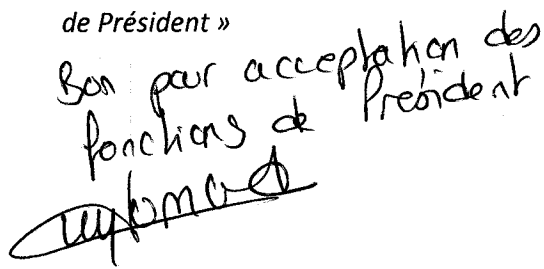 de Président »
Bon pour acceptation des
fonctions de Président